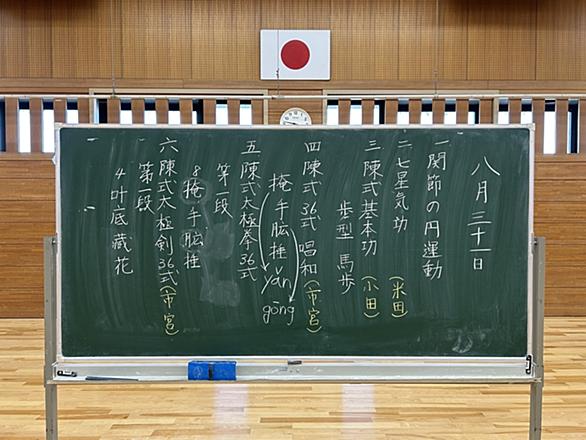 八月三十一日
一 関節の円運動
二 七星気功 (米田)
三 陳式基本功 (小田)
歩型 馬歩
四 陳式36式 唱和 (市宮)
掩手肱捶 yǎn gōng
五 陳式太極拳36式
第一段
8 掩手肱捶
六 陳式太極剣36式 (市宮)
第一段
4 叶底藏花